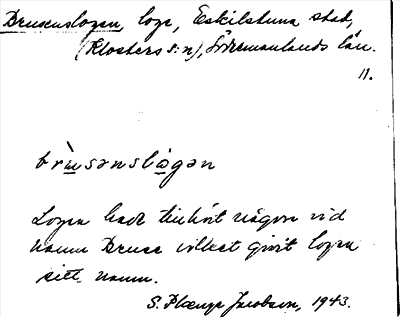 Brusenslogen, loge, Eskilstuna stad,
(Klosters s:n), Södermanlands län.
11.
brùsənslågən
Logen hade tillhört någon vid
namn Bruse vilket givit logen
sitt namn.
S. Plænge Jacobson, 1943.